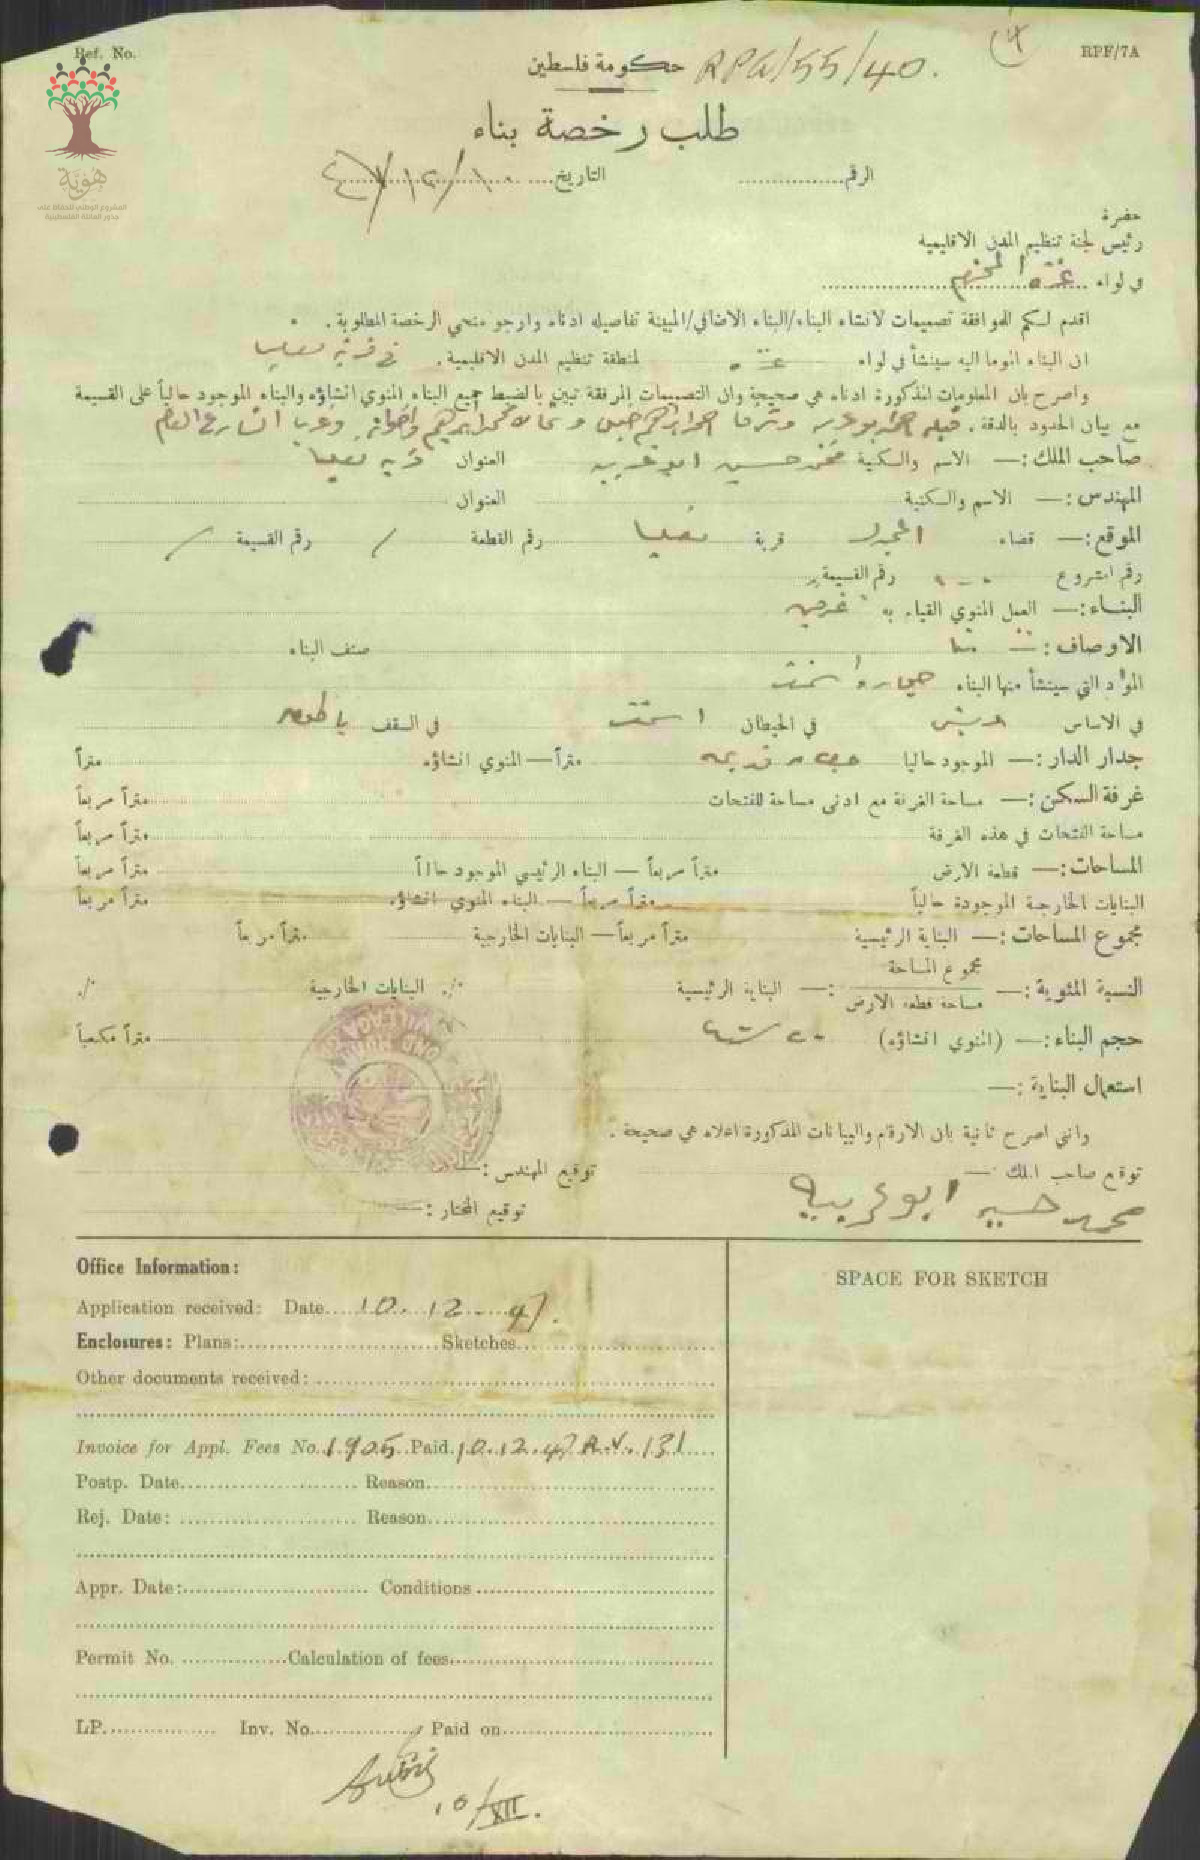 Ref. No.
RPF/7A
حكومة فلسطين
RPG/55/40.
طلب رخصة بناء
الرقم ............ التاريخ ١٠/١٢/٤٧
هوية
المشروع الوطني للحفاظ على
جذور العائلة الفلسطينية
حضرة
رئيس لجنة تنظيم المدن الاقليمية
في لواء غزة المحترم
اقدم لكم للموافقة تصميمات لانشاء البناء/البناء الاضافي/المبينة تفاصيله ادناه وارجو منحي الرخصة المطلوبة.
ان البناء الموما اليه سينشأ في لواء غزة لمنطقة تنظيم المدن الاقليمية. في قرية نعليا
واصرح بان المعلومات المذكورة ادناه هي صحيحة وان التصميمات المرفقة تبين بالضبط جميع البناء المنوي انشاؤه والبناء الموجود حالياً على القسيمة
مع بيان الحدود بالدقة. وغربا الشارع العام
صاحب الملك:— الاسم والكنية محمد حسين ابو غربيه العنوان قرية نعليا
المهندس:— الاسم والكنية العنوان
الموقع:— قضاء المجدل قرية نعليا رقم القطعة / رقم القسيمة /
رقم المشروع رقم القسيمة
البناء:— العمل المنوي القيام به
الاوصاف:— صنف البناء
المواد التي سينشأ منها البناء حجار واسمنت
في الاساس دبش في الحيطان اسمنت في السقف باطون
جدار الدار:— الموجود حاليا متراً — المنوي انشاؤه متراً
غرفة السكن:— مساحة الغرفة مع ادنى مساحة للفتحات متراً مربعاً
مساحة الفتحات في هذه الغرفة متراً مربعاً
المساحات:— قطعة الارض متراً مربعاً — البناء الرئيسي الموجود حالاً متراً مربعاً
البنايات الخارجية الموجودة حالياً متراً مربعاً — البناء المنوي انشاؤه متراً مربعاً
مجموع المساحات:— البناية الرئيسية متراً مربعاً — البنايات الخارجية متراً مربعاً
النسبة المئوية:— مجموع المساحة / مساحة قطعة الارض :— البناية الرئيسية ٪ البنايات الخارجية ٪
حجم البناء:— (المنوي انشاؤه) متراً مكعباً
استعمال البناية:—
وانني اصرح ثانية بان الارقام والبيانات المذكورة اعلاه هي صحيحة.
توقيع صاحب الملك — توقيع المهندس:—
محمد حسين ابو غربيه
توقيع المختار:—
Office Information:
SPACE FOR SKETCH
Application received: Date....10..12...47.
Enclosures: Plans:............Sketches............
Other documents received:............
Invoice for Appl. Fees No. 1905 Paid 10.12.47 R.V. 131
Postp. Date............ Reason............
Rej. Date: ............ Reason............
Appr. Date:............ Conditions............
Permit No. ............Calculation of fees............
LP............ Inv. No............ Paid on............
10/XII.